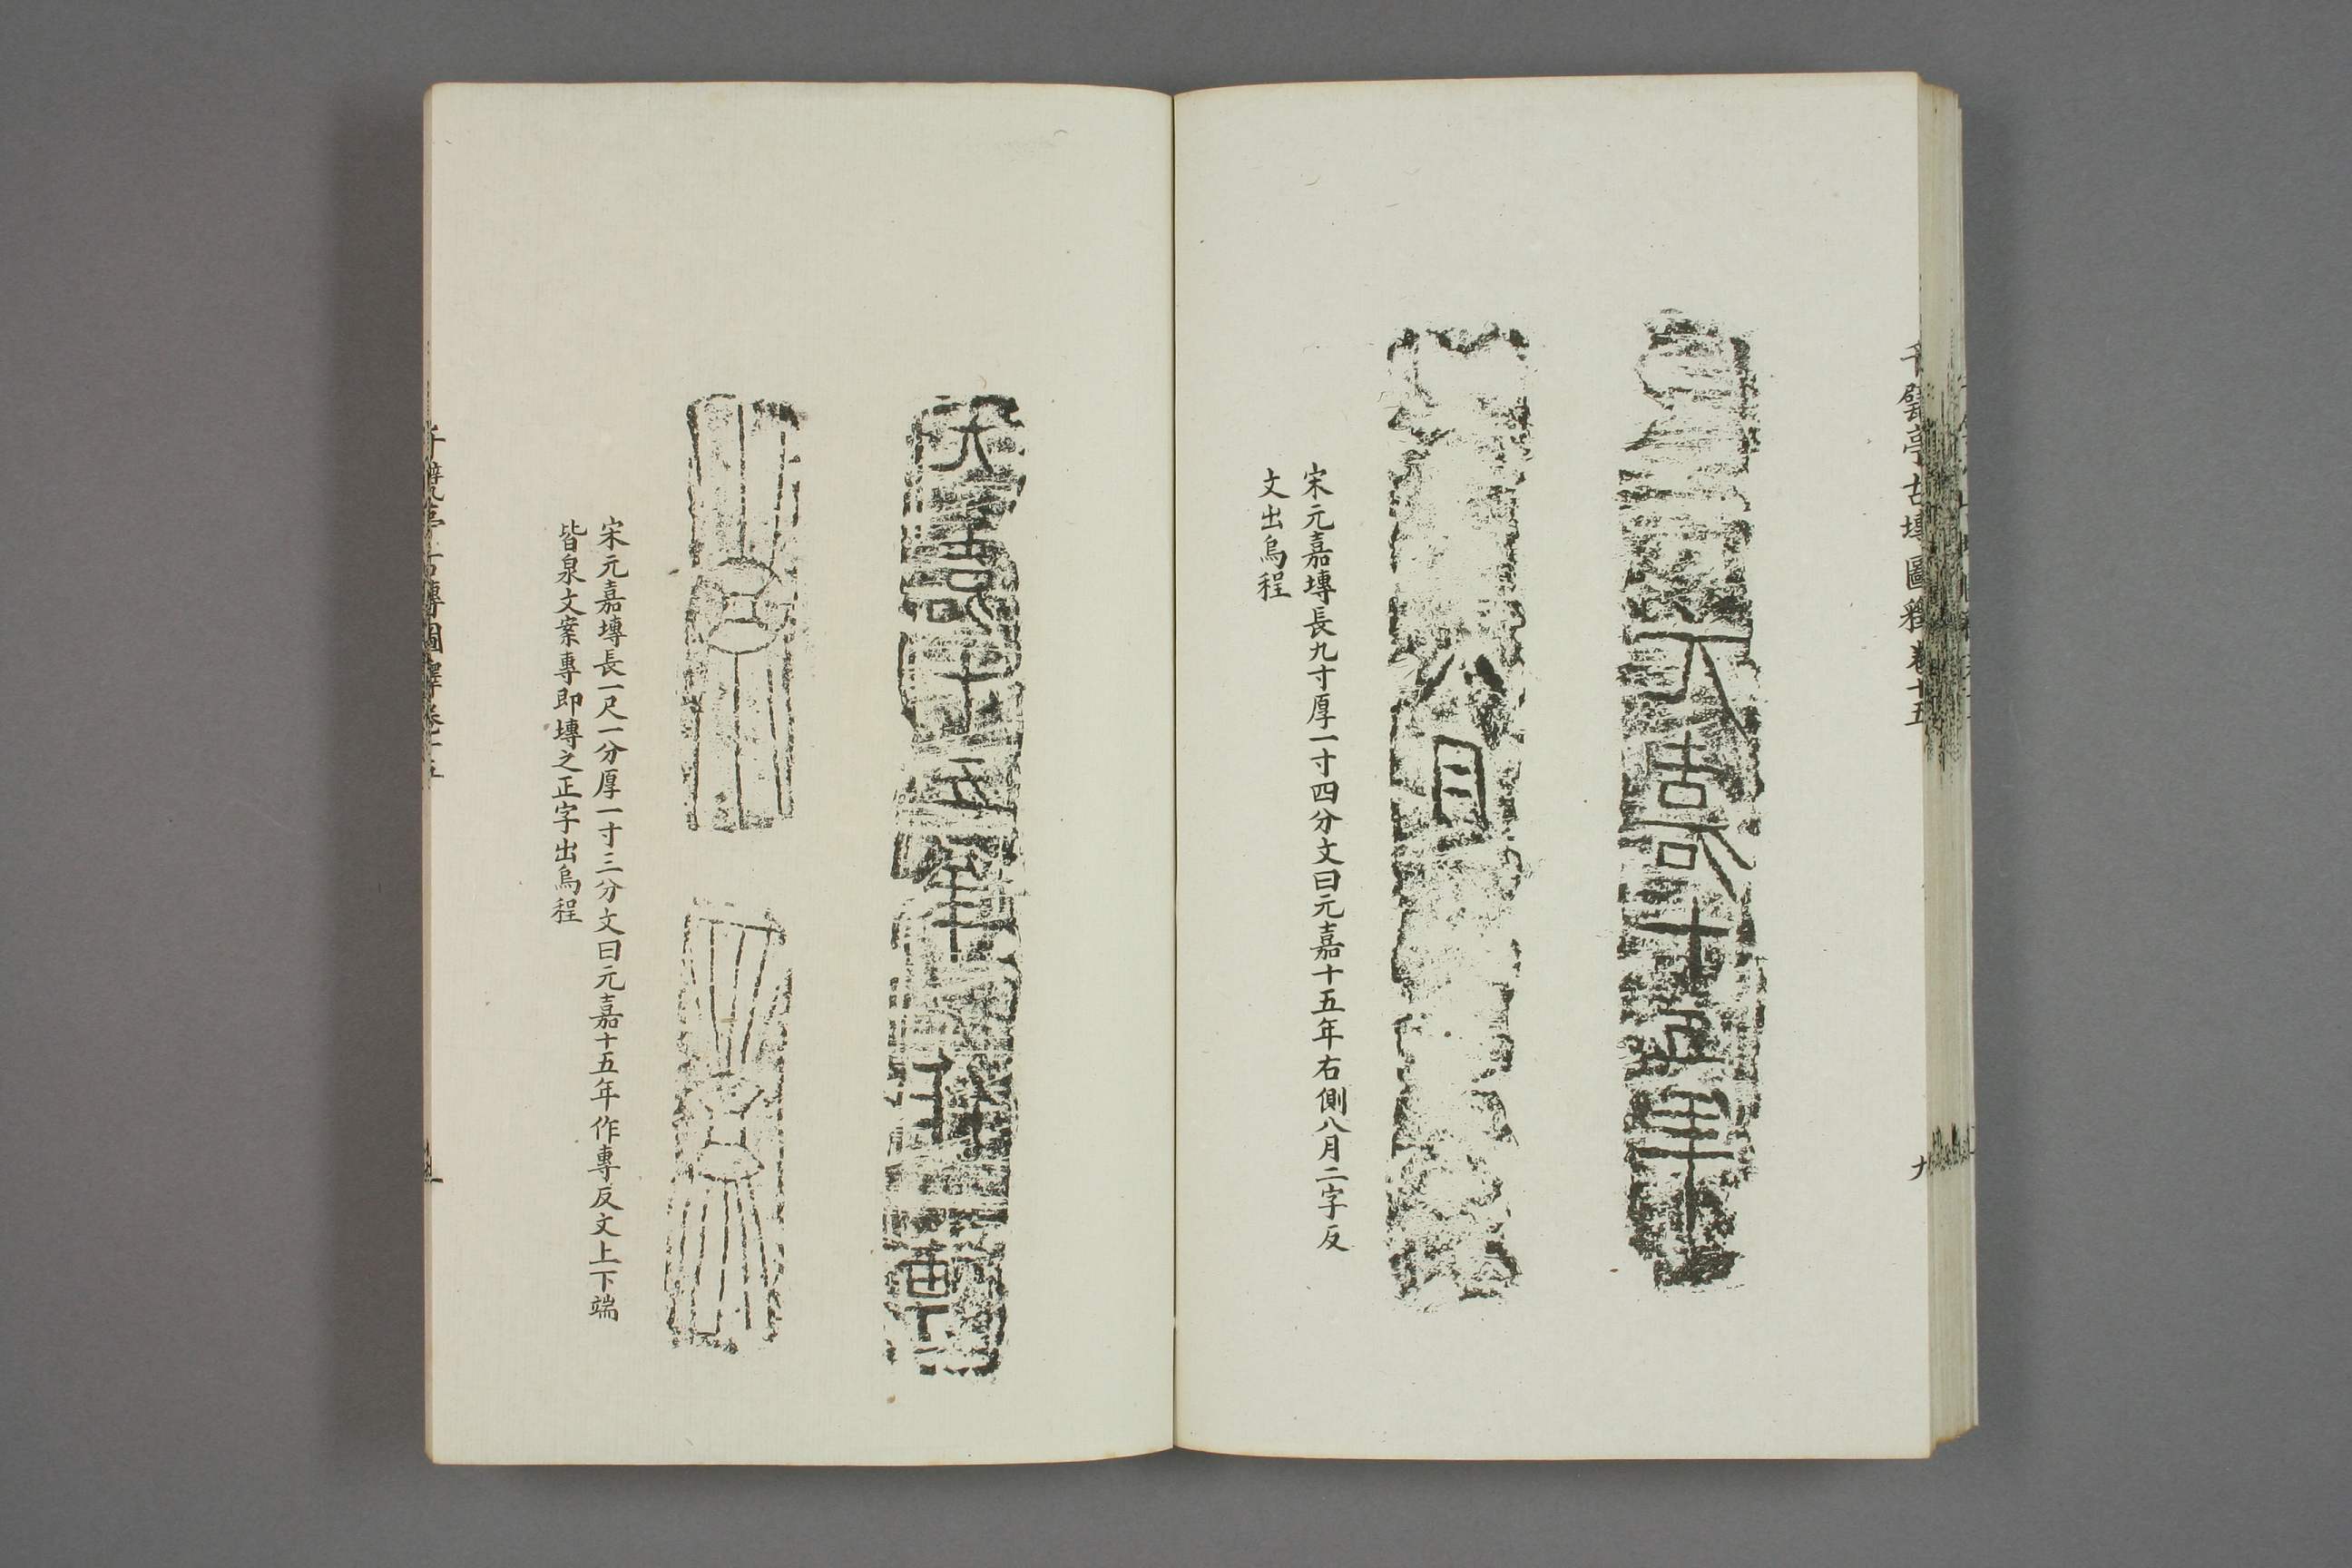 千甓亭古塼圖釋卷十五
九
元嘉十五年
八月
宋元嘉塼長九寸厚一寸四分文曰元嘉十五年右側八月二字反
文出烏程
元嘉十五年作專
宋元嘉塼長一尺一分厚一寸三分文曰元嘉十五年作專反文上下端
皆泉文案專即塼之正字出烏程
千甓亭古塼圖釋卷十五